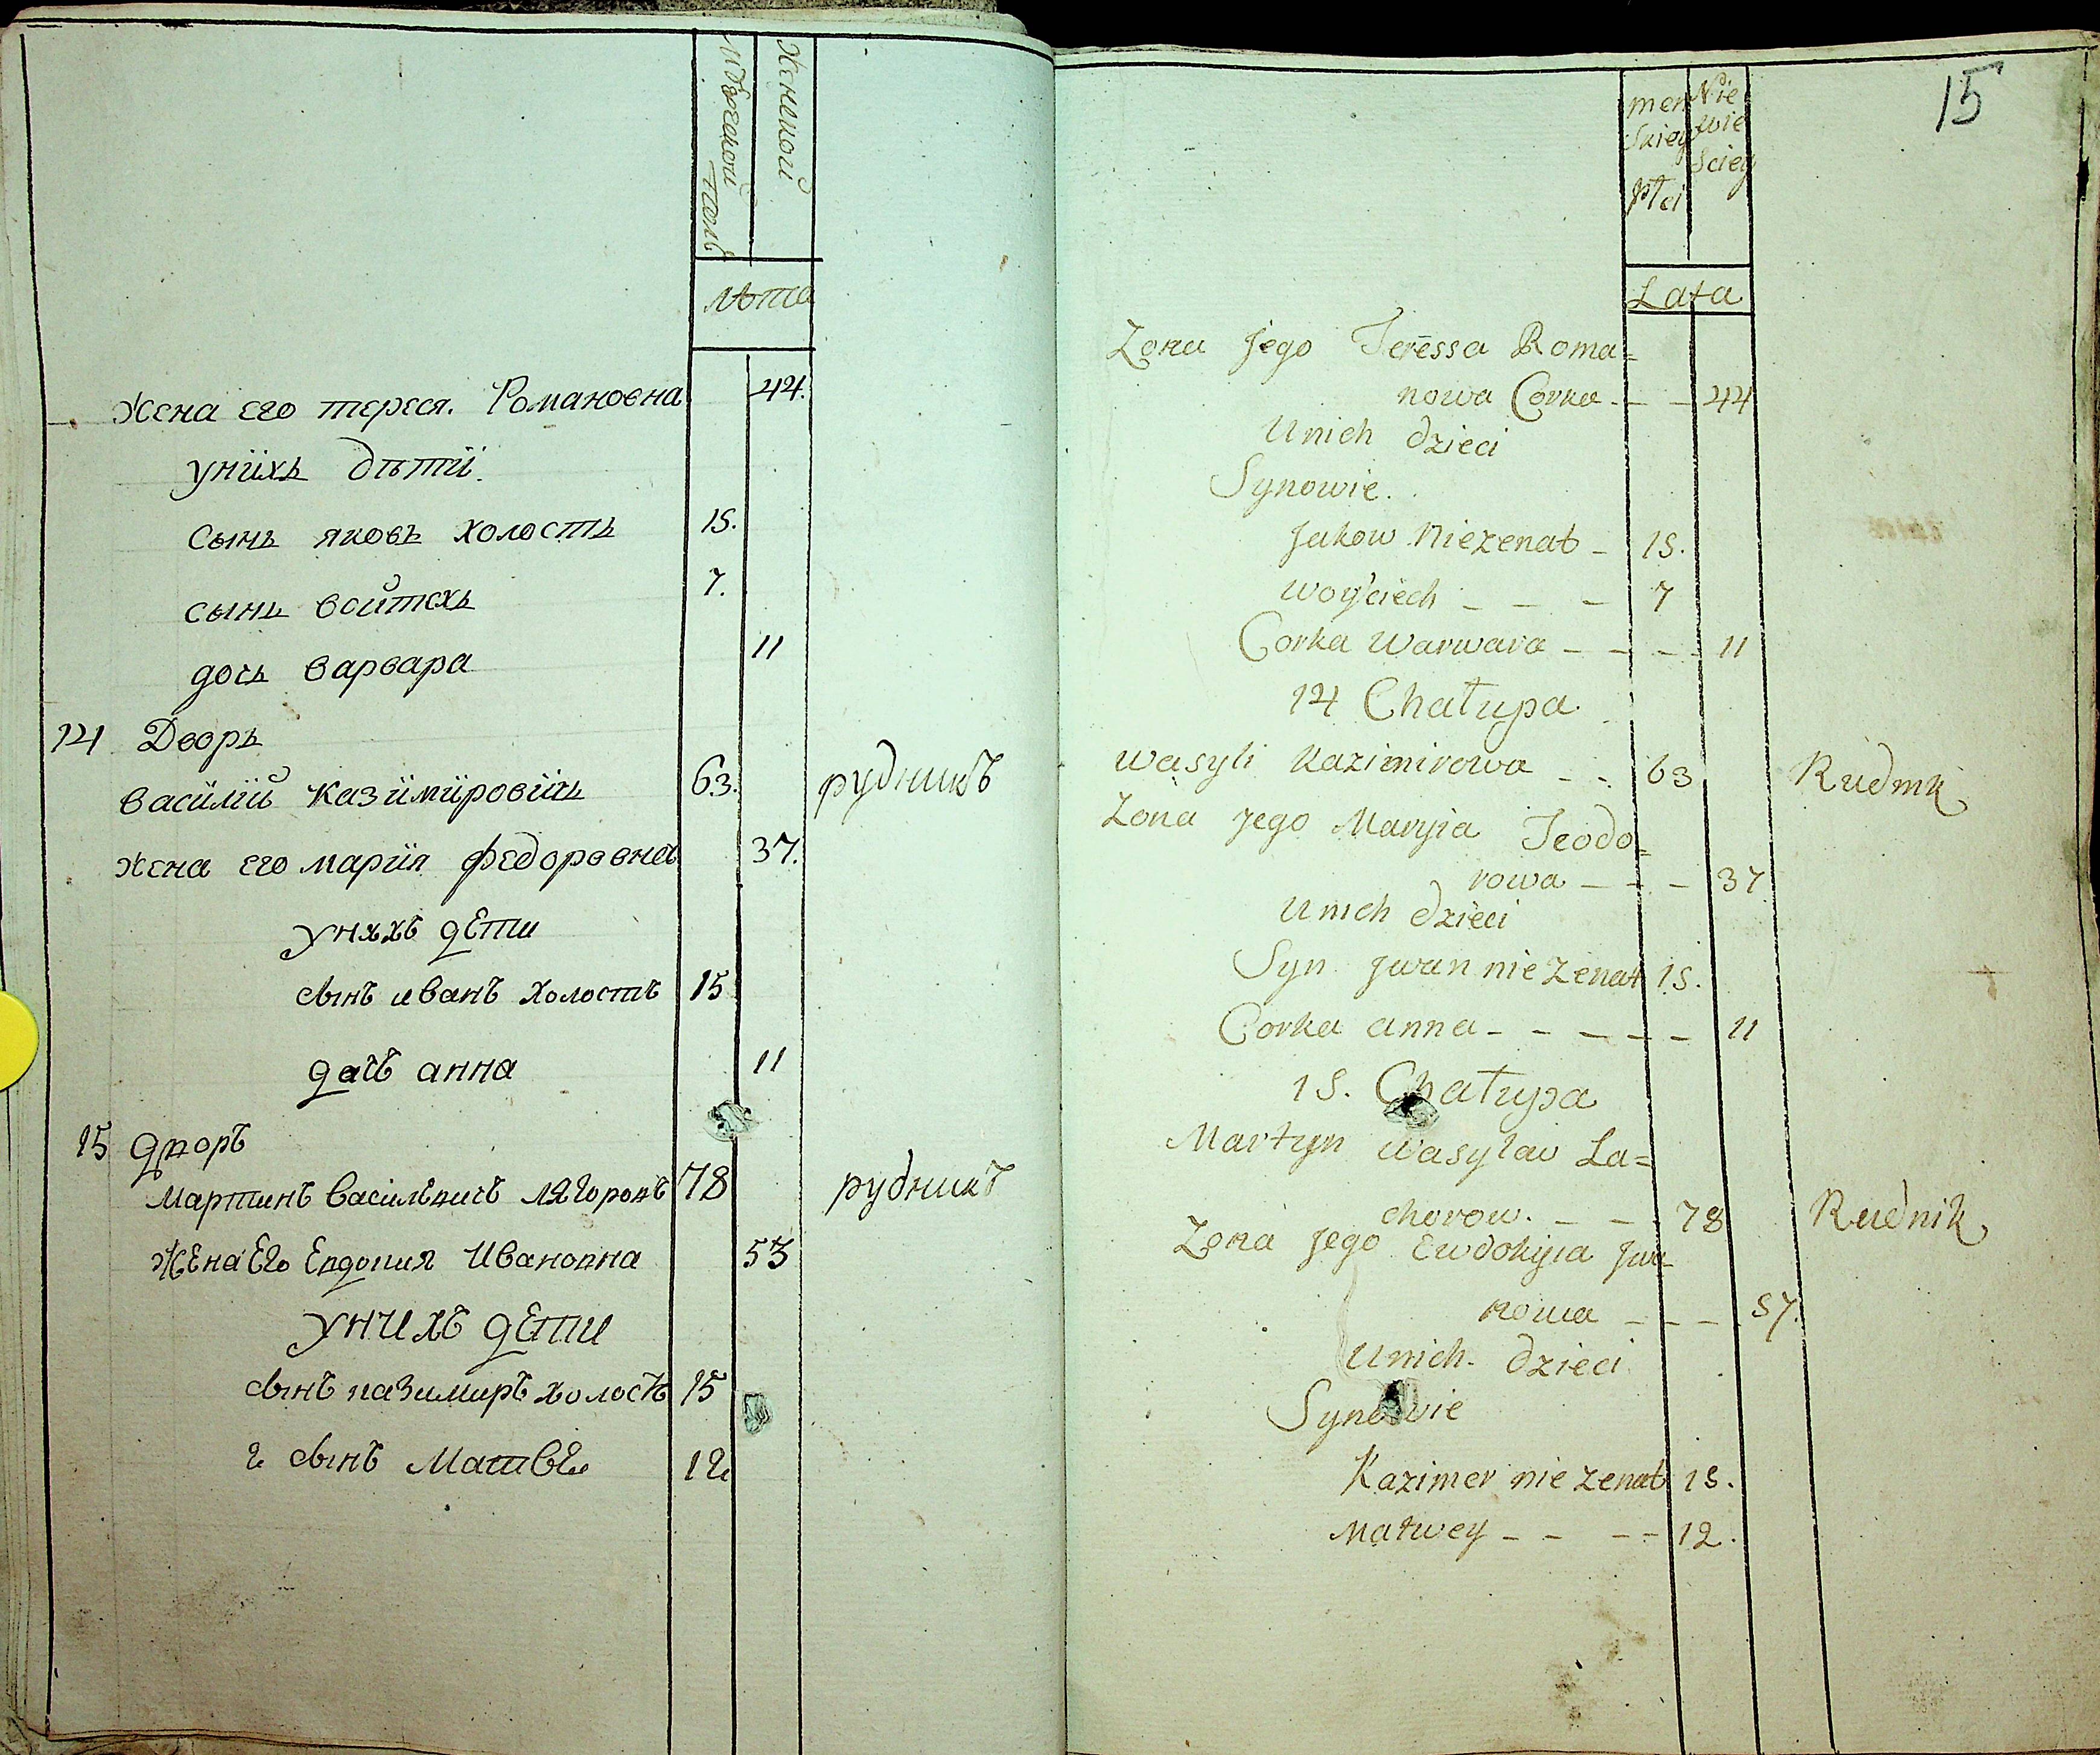 мужеской полъ
женской
лѣта
жена его тереся. Романовна 44.
унïхъ дѣтï.
сынъ яковъ холостъ 15.
сынъ войтехъ 7.
дочь варвара 11
14 Дворъ
васïлïй казïмïровïчъ 63. рудникъ
жена его марïя федоровна 37.
унихъ дети
сынъ иванъ холостъ 15
дачь анна 11
15 дворъ
мартинъ василвичъ 78 рудникъ
жена Его Евдокия Ивановна 53
унихъ дети
сынъ казимиръ холостъ 15
2 сынъ Матвей 12
15
men Nie
skiey wie
sciey
płci
Lata
Zona jego Teressa Roma=
nowa Corka - - 44
Unich dzieci
Synowie.
Jakow Niezenat - 15.
woyciech - - - 7
Corka Warwara - - - - 11
14 Chałupa.
wasyli Kazimirowa - - 63 Rudnik
Zona jego Maryia Teodo=
rowa - - - 37
Unich dzieci
Syn jwan nie zenat 15.
Corka anna - - - - - 11
15. Chałupa
Martyn wasylaw La=
chorow. - - 78 Rudnik
Zona jego Ewdokyia jwa=
nowa - - - 57.
Unich dzieci
Synowie
Kazimer nie zenat 15.
Matwey - - - - 12.